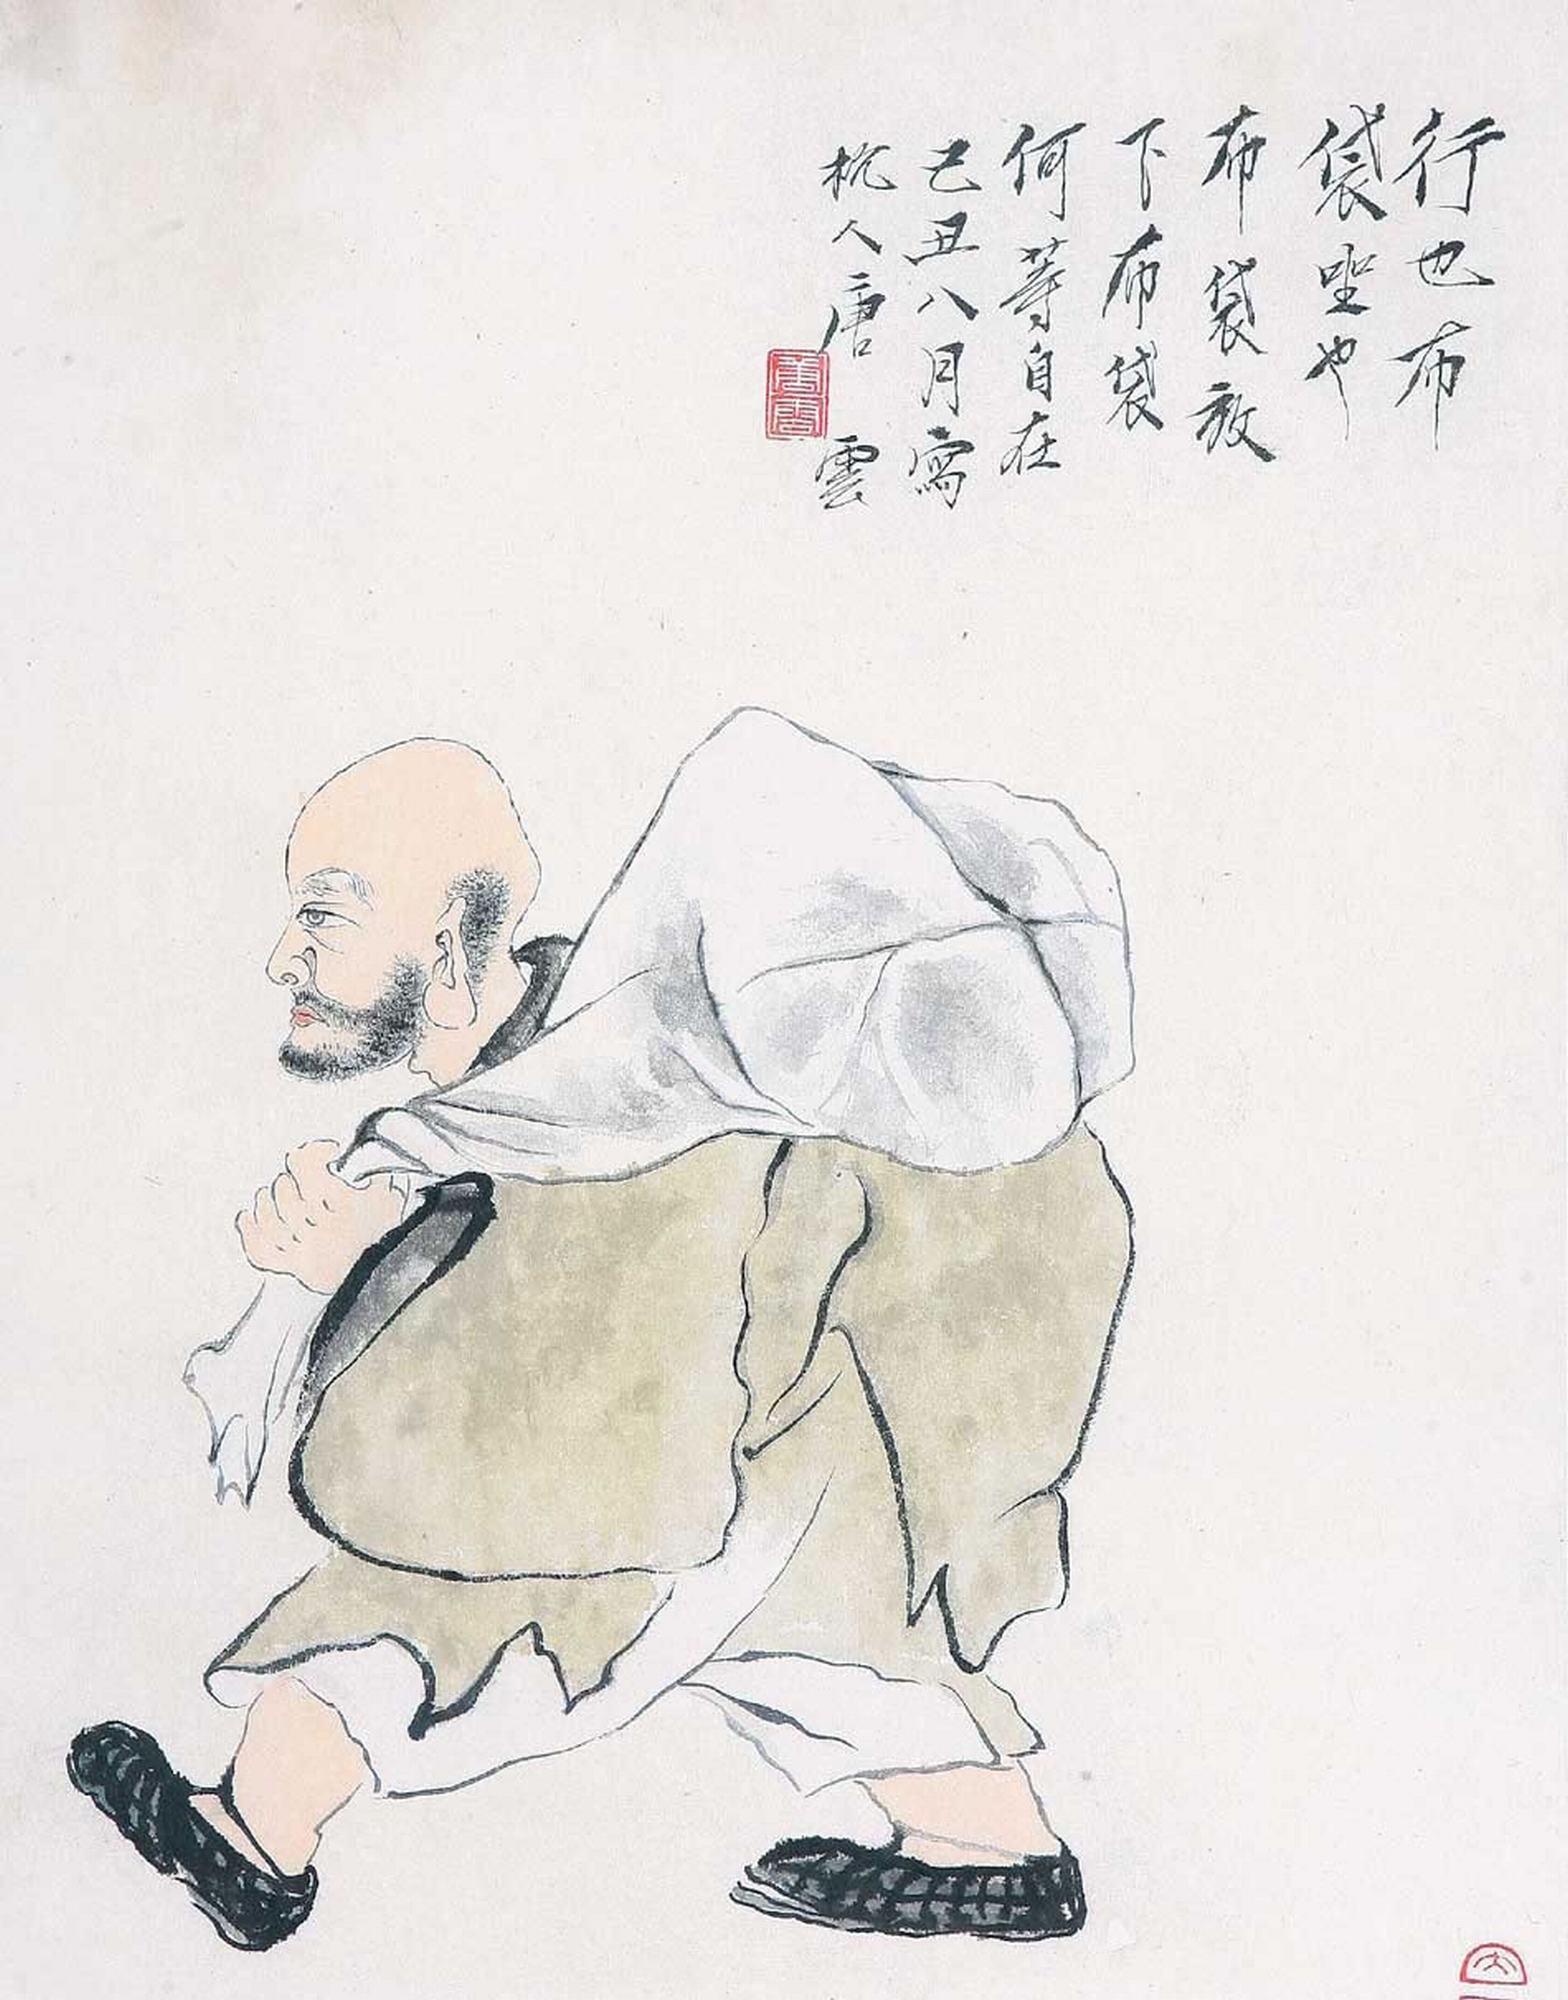 行也布
袋坐也
布袋放
下布袋
何等自在
己丑八月寫
杭人唐雲
唐雲